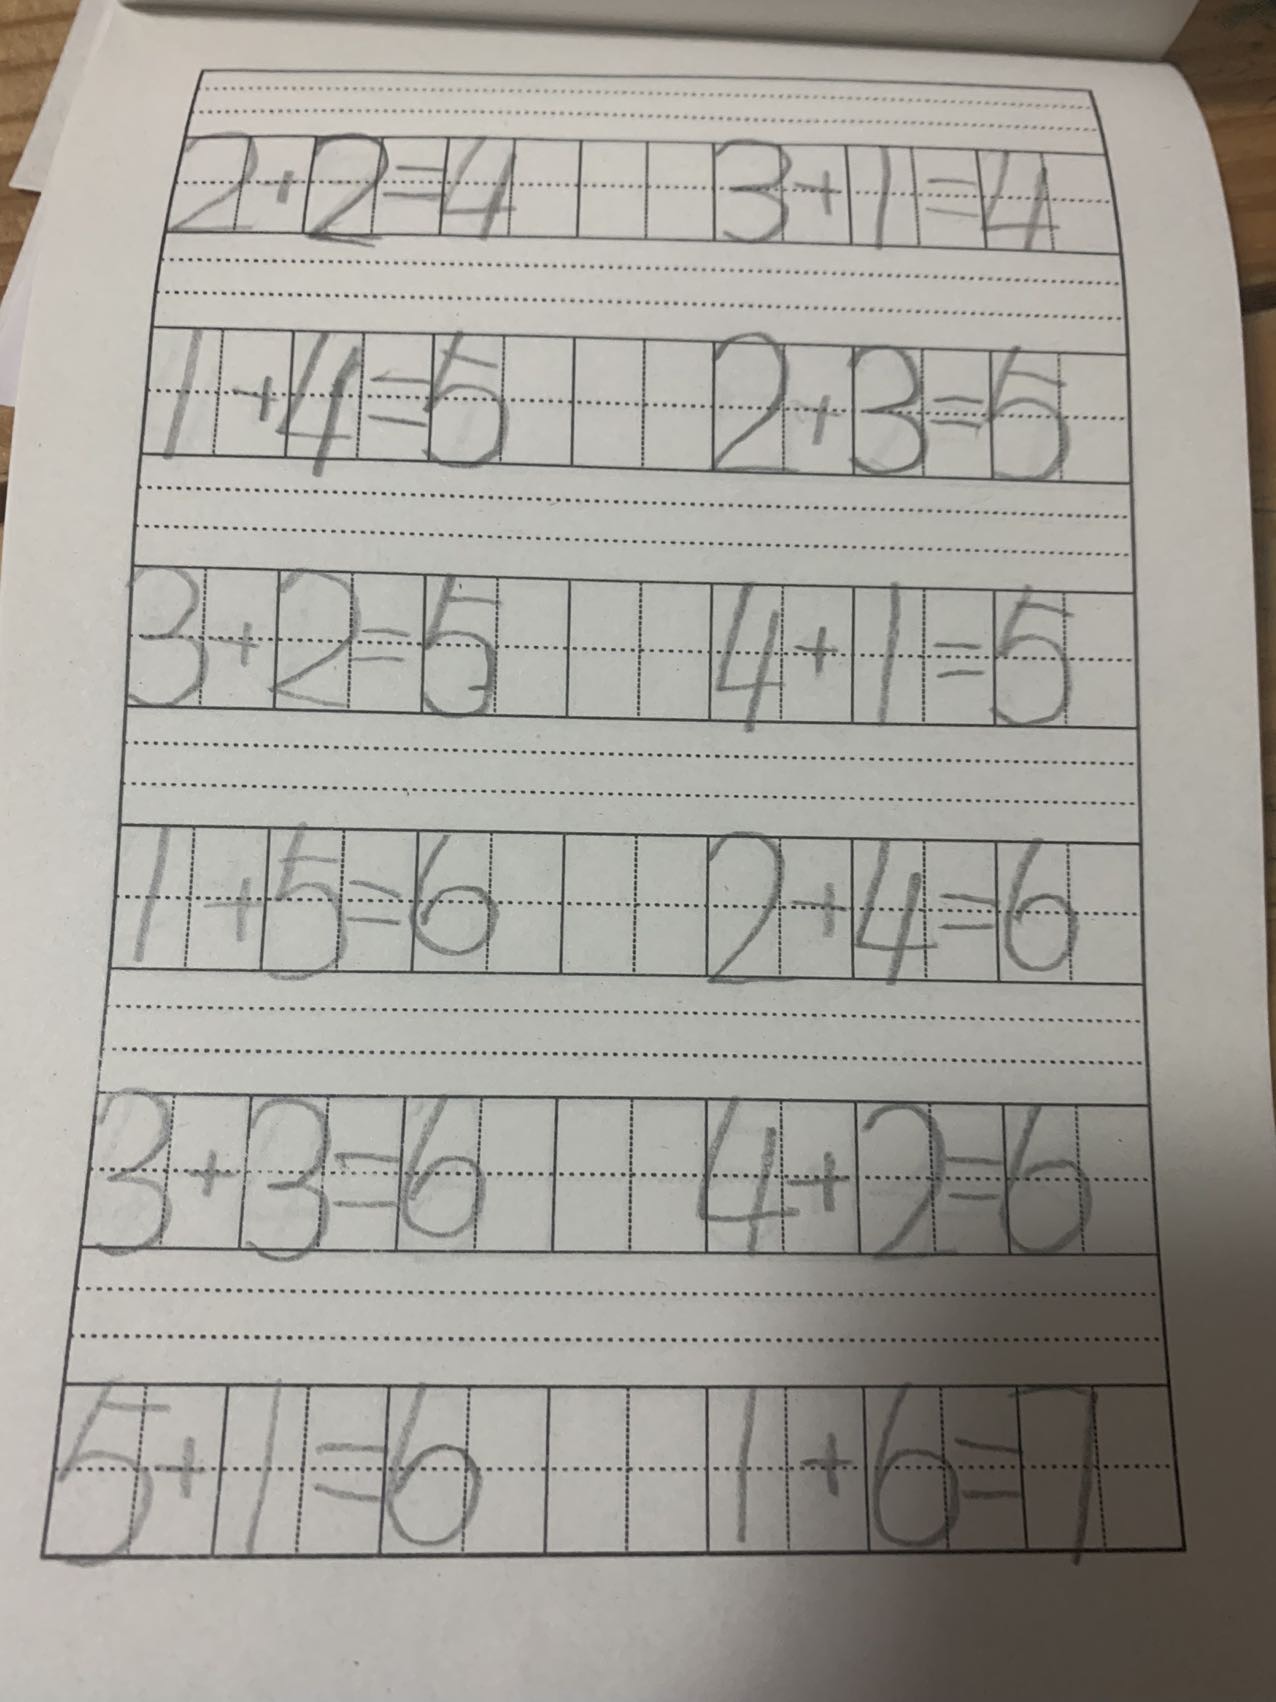 2+2=4 3+1=4
1+4=5 2+3=5
3+2=5 4+1=5
1+5=6 2+4=6
3+3=6 4+2=6
5+1=6 1+6=7